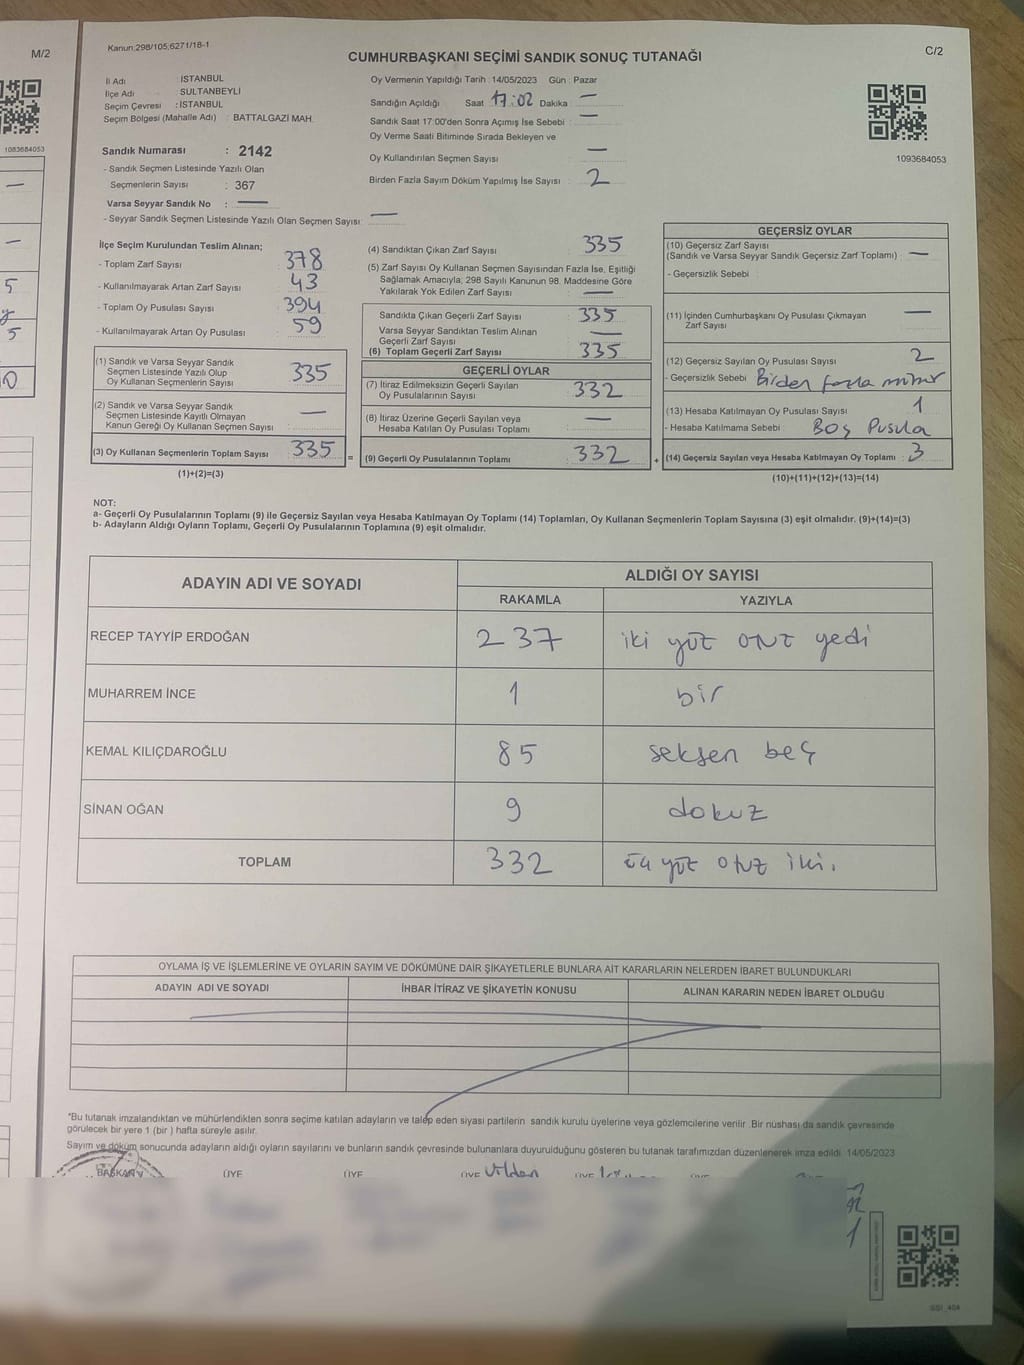 M/2
1083684053
5
5
Kanun:298/105;6271/18-1
C/2
CUMHURBAŞKANI SEÇİMİ SANDIK SONUÇ TUTANAĞI
İl Adı : İSTANBUL
İlçe Adı : SULTANBEYLİ
Seçim Çevresi : İSTANBUL
Seçim Bölgesi (Mahalle Adı) : BATTALGAZİ MAH.
Sandık Numarası : 2142
- Sandık Seçmen Listesinde Yazılı Olan
Seçmenlerin Sayısı : 367
Varsa Seyyar Sandık No : —
- Seyyar Sandık Seçmen Listesinde Yazılı Olan Seçmen Sayısı: —
Oy Vermenin Yapıldığı Tarih : 14/05/2023 Gün : Pazar
Sandığın Açıldığı Saat 17:02 Dakika : —
Sandık Saat 17:00'den Sonra Açımış İse Sebebi : —
Oy Verme Saati Bitiminde Sırada Bekleyen ve
Oy Kullandırılan Seçmen Sayısı : —
Birden Fazla Sayım Döküm Yapılmış İse Sayısı : 2
1093684053
İlçe Seçim Kurulundan Teslim Alınan;
- Toplam Zarf Sayısı : 378
- Kullanılmayarak Artan Zarf Sayısı : 43
- Toplam Oy Pusulası Sayısı : 394
- Kullanılmayarak Artan Oy Pusulası : 59
(1) Sandık ve Varsa Seyyar Sandık
Seçmen Listesinde Yazılı Olup
Oy Kullanan Seçmenlerin Sayısı : 335
(2) Sandık ve Varsa Seyyar Sandık
Seçmen Listesinde Kayıtlı Olmayan
Kanun Gereği Oy Kullanan Seçmen Sayısı : —
(3) Oy Kullanan Seçmenlerin Toplam Sayısı : 335 =
(1)+(2)=(3)
(4) Sandıktan Çıkan Zarf Sayısı : 335
(5) Zarf Sayısı Oy Kullanan Seçmen Sayısından Fazla İse, Eşitliği
Sağlamak Amacıyla; 298 Sayılı Kanunun 98. Maddesine Göre
Yakılarak Yok Edilen Zarf Sayısı : —
Sandıkta Çıkan Geçerli Zarf Sayısı : 335
Varsa Seyyar Sandıktan Teslim Alınan
Geçerli Zarf Sayısı : —
(6) Toplam Geçerli Zarf Sayısı : 335
GEÇERLİ OYLAR
(7) İtiraz Edilmeksizin Geçerli Sayılan
Oy Pusulalarının Sayısı : 332
(8) İtiraz Üzerine Geçerli Sayılan veya
Hesaba Katılan Oy Pusulası Toplamı : —
(9) Geçerli Oy Pusulalarının Toplamı : 332 +
GEÇERSİZ OYLAR
(10) Geçersiz Zarf Sayısı
(Sandık ve Varsa Seyyar Sandık Geçersiz Zarf Toplamı) : —
- Geçersizlik Sebebi :
(11) İçinden Cumhurbaşkanı Oy Pusulası Çıkmayan
Zarf Sayısı : —
(12) Geçersiz Sayılan Oy Pusulası Sayısı : 2
- Geçersizlik Sebebi : Birden fazla mühür
(13) Hesaba Katılmayan Oy Pusulası Sayısı : 1
- Hesaba Katılmama Sebebi : Boş Pusula
(14) Geçersiz Sayılan veya Hesaba Katılmayan Oy Toplamı : 3
(10)+(11)+(12)+(13)=(14)
NOT:
a- Geçerli Oy Pusulalarının Toplamı (9) ile Geçersiz Sayılan veya Hesaba Katılmayan Oy Toplamı (14) Toplamları, Oy Kullanan Seçmenlerin Toplam Sayısına (3) eşit olmalıdır. (9)+(14)=(3)
b- Adayların Aldığı Oyların Toplamı, Geçerli Oy Pusulalarının Toplamına (9) eşit olmalıdır.
ADAYIN ADI VE SOYADI
ALDIĞI OY SAYISI
RAKAMLA YAZIYLA
RECEP TAYYİP ERDOĞAN 237 iki yüz otuz yedi
MUHARREM İNCE 1 bir
KEMAL KILIÇDAROĞLU 85 seksen beş
SİNAN OĞAN 9 dokuz
TOPLAM 332 üç yüz otuz iki.
OYLAMA İŞ VE İŞLEMLERİNE VE OYLARIN SAYIM VE DÖKÜMÜNE DAİR ŞİKAYETLERLE BUNLARA AİT KARARLARIN NELERDEN İBARET BULUNDUKLARI
ADAYIN ADI VE SOYADI İHBAR İTİRAZ VE ŞİKAYETİN KONUSU ALINAN KARARIN NEDEN İBARET OLDUĞU
*Bu tutanak imzalandıktan ve mühürlendikten sonra seçime katılan adayların ve talep eden siyasi partilerin sandık kurulu üyelerine veya gözlemcilerine verilir .Bir nüshası da sandık çevresinde
görülecek bir yere 1 (bir ) hafta süreyle asılır.
Sayım ve döküm sonucunda adayların aldığı oyların sayılarını ve bunların sandık çevresinde bulunanlara duyurulduğunu gösteren bu tutanak tarafımızdan düzenlenerek imza edildi. 14/05/2023
BAŞKAN ÜYE ÜYE ÜYE ÜYE ÜYE
GSI_404